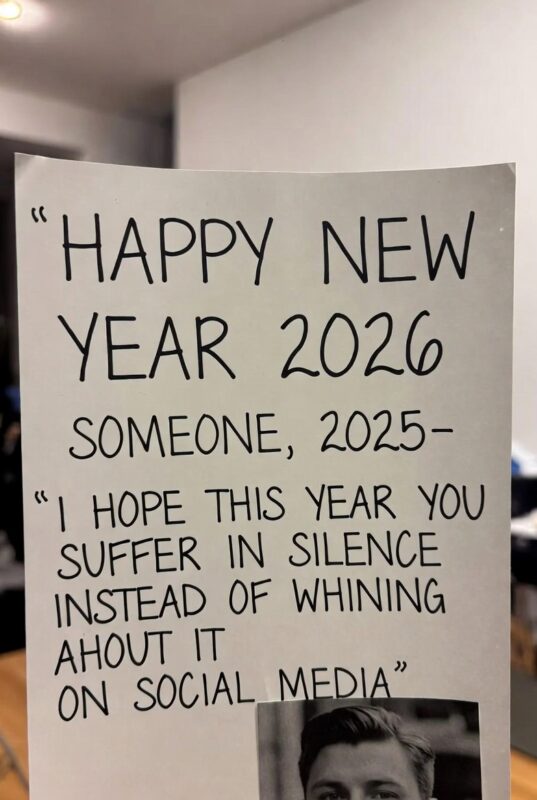 “HAPPY NEW
YEAR 2026
SOMEONE, 2025–
“I HOPE THIS YEAR YOU
SUFFER IN SILENCE
INSTEAD OF WHINING
AHOUT IT
ON SOCIAL MEDIA”